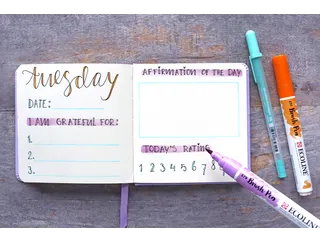 tuesday
DATE:
I AM GRATEFUL FOR:
1.
2.
3.
AFFIRMATION OF THE DAY
TODAY'S RATING
1 2 3 4 5 6 7 8
Brush Pen
ECOLINE
Brush Pen
ECOLINE